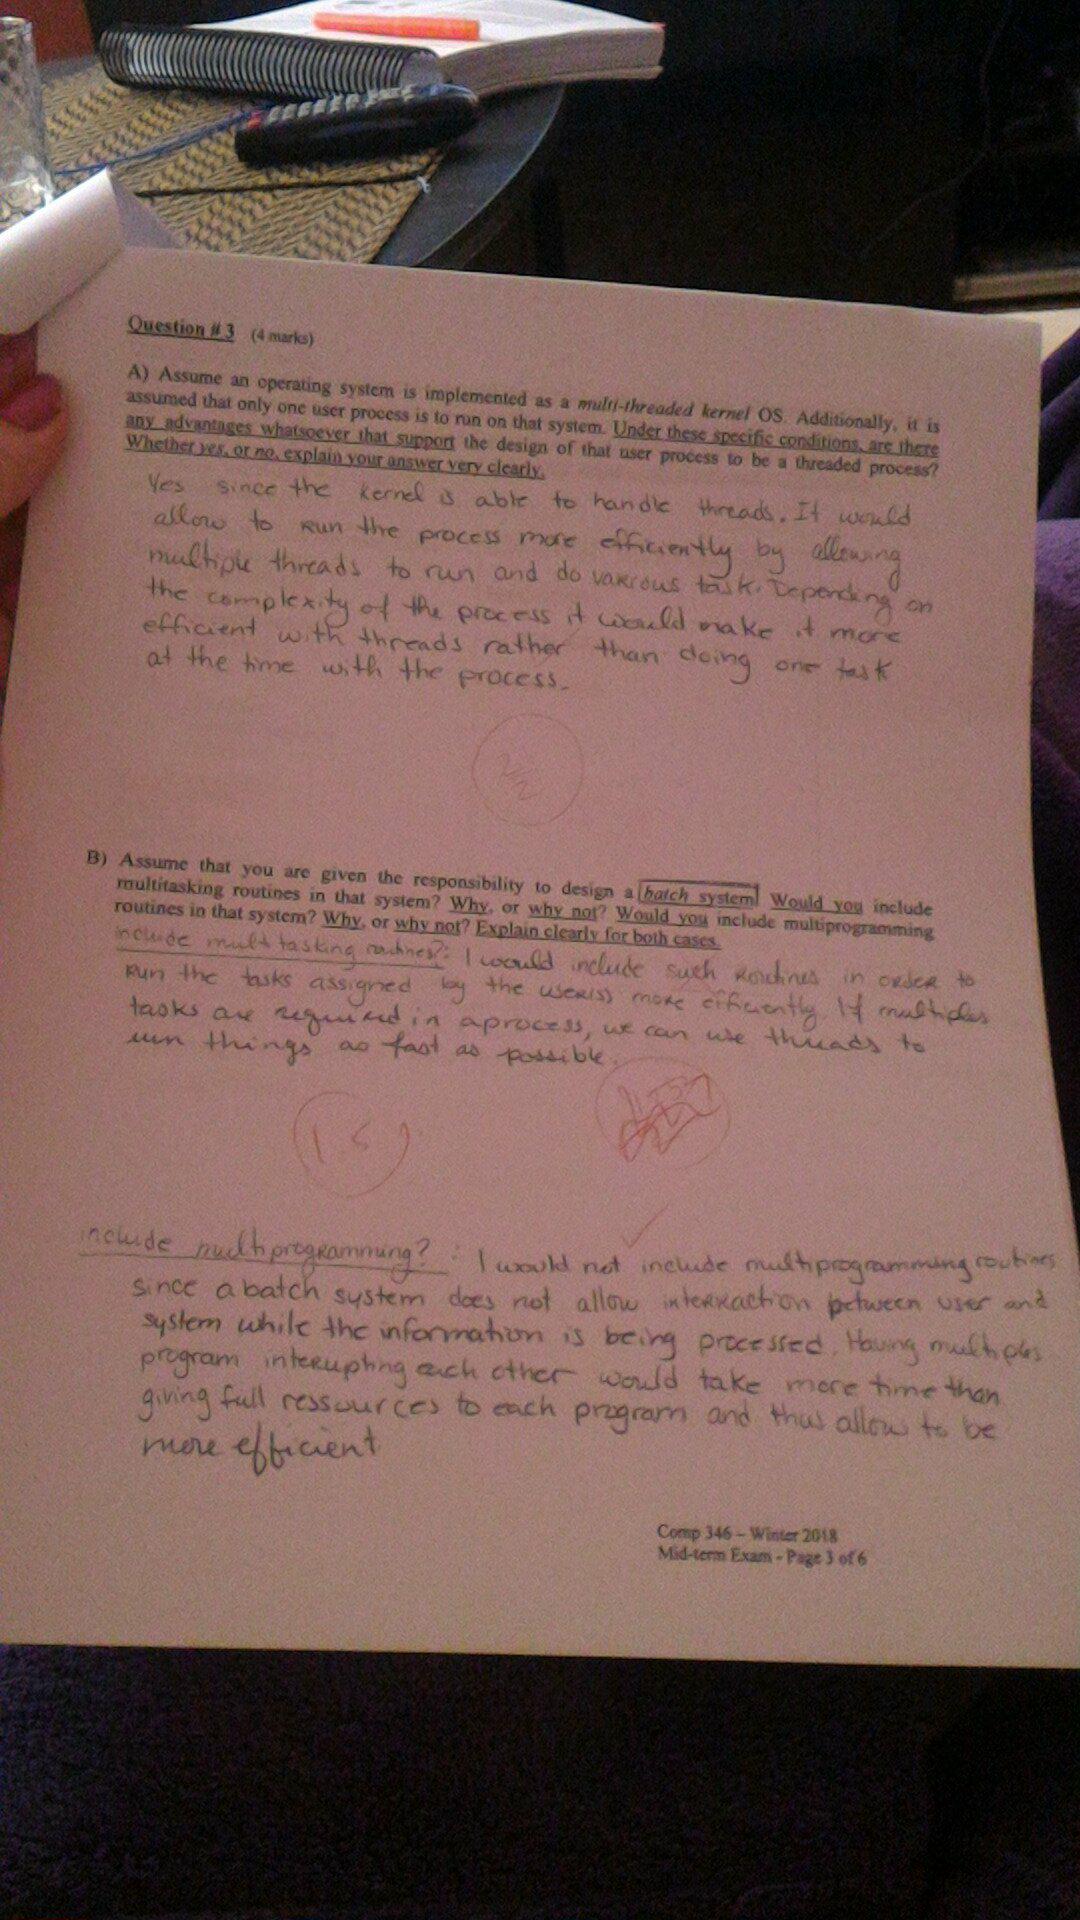 Question # 3 (4 marks)
A) Assume an operating system is implemented as a multi-threaded kernel OS. Additionally, it is
assumed that only one user process is to run on that system. Under these specific conditions, are there
any advantages whatsoever that support the design of that user process to be a threaded process?
Whether yes, or no, explain your answer very clearly.
Yes since the kernel is able to handle threads. It would
allow to run the process more efficiently by allowing
multiple threads to run and do various task. Depending on
the complexity of the process it would make it more
efficient with threads rather than doing one task
at the time with the process.
2/2
B) Assume that you are given the responsibility to design a batch system. Would you include
multitasking routines in that system? Why, or why not? Would you include multiprogramming
routines in that system? Why, or why not? Explain clearly for both cases.
include multi tasking routines?: I would include such routines in order to
run the tasks assigned by the user(s) more efficiently. If multiples
tasks are required in a process, we can use threads to
run things as fast as possible.
1.5
include multiprogramming? : I would not include multiprogramming routines
since a batch system does not allow interraction between user and
system while the information is being processed. Having multiples
program interupting each other would take more time than
giving full ressources to each program and thus allow to be
more efficient
Comp 346 – Winter 2018
Mid-term Exam - Page 3 of 6